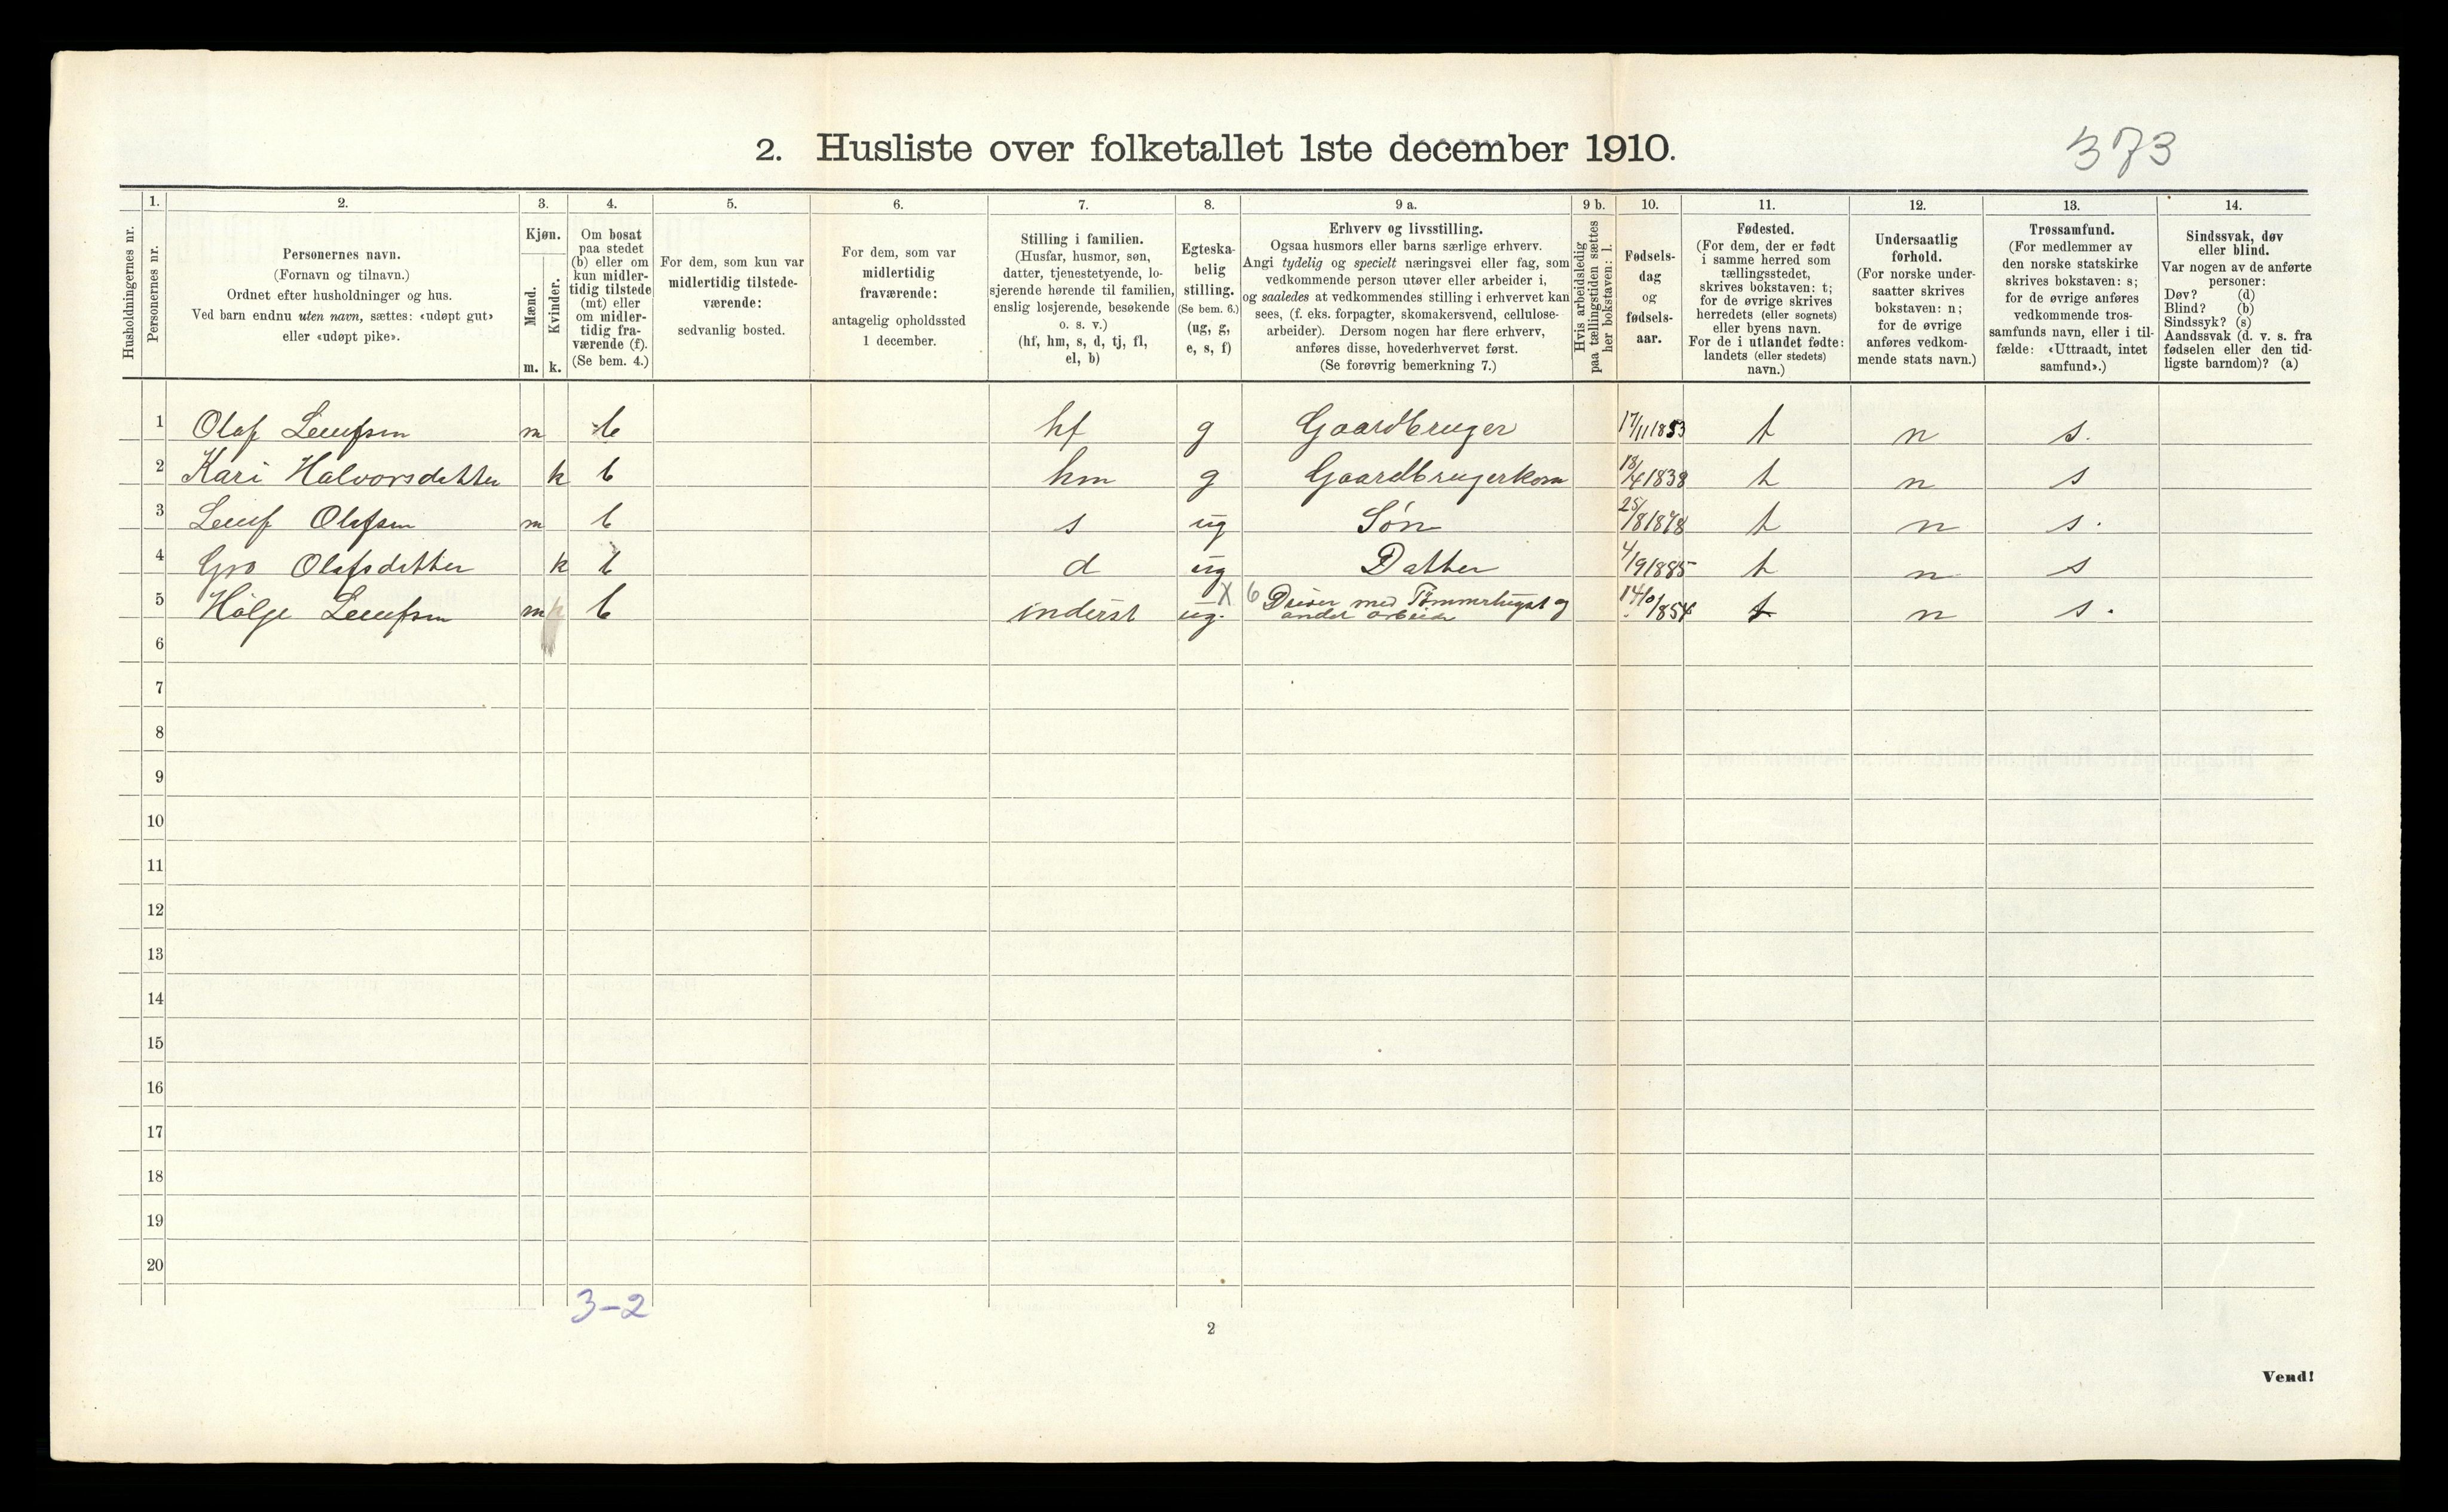 2. Husliste over folketallet 1ste december 1910.
373
Husholdningernes nr.
1.
Personernes nr.
2.
Personernes navn.
(Fornavn og tilnavn.)
Ordnet efter husholdninger og hus.
Ved barn endnu uten navn, sættes: «udøpt gut»
eller «udøpt pike».
3.
Kjøn.
Mænd.
Kvinder.
m. k.
4.
Om bosat
paa stedet
(b) eller om
kun midler-
tidig tilstede
(mt) eller
om midler-
tidig fra-
værende (f).
(Se bem. 4.)
5.
For dem, som kun var
midlertidig tilstede-
værende:
sedvanlig bosted.
6.
For dem, som var
midlertidig
fraværende:
antagelig opholdssted
1 december.
7.
Stilling i familien.
(Husfar, husmor, søn,
datter, tjenestetyende, lo-
sjerende hørende til familien,
enslig losjerende, besøkende
o. s. v.)
(hf, hm, s, d, tj, fl,
el, b)
8.
Egteska-
belig
stilling.
(Se bem. 6.)
(ug, g,
e, s, f)
9 a.
Erhverv og livsstilling.
Ogsaa husmors eller barns særlige erhverv.
Angi tydelig og specielt næringsvei eller fag, som
vedkommende person utøver eller arbeider i,
og saaledes at vedkommendes stilling i erhvervet kan
sees, (f. eks. forpagter, skomakersvend, cellulose-
arbeider). Dersom nogen har flere erhverv,
anføres disse, hovederhvervet først.
(Se forøvrig bemerkning 7.)
9 b.
Hvis arbeidsledig
paa tællingstiden sættes
her bokstaven: l.
10.
Fødsels-
dag
og
fødsels-
aar.
11.
Fødested.
(For dem, der er født
i samme herred som
tællingsstedet,
skrives bokstaven: t;
for de øvrige skrives
herredets (eller sognets)
eller byens navn.
For de i utlandet fødte:
landets (eller stedets)
navn.)
12.
Undersaatlig
forhold.
(For norske under-
saatter skrives
bokstaven: n;
for de øvrige
anføres vedkom-
mende stats navn.)
13.
Trossamfund.
(For medlemmer av
den norske statskirke
skrives bokstaven: s;
for de øvrige anføres
vedkommende tros-
samfunds navn, eller i til-
fælde: «Uttraadt, intet
samfund».)
14.
Sindssvak, døv
eller blind.
Var nogen av de anførte
personer:
Døv? (d)
Blind? (b)
Sindssyk? (s)
Aandssvak (d. v. s. fra
fødselen eller den tid-
ligste barndom)? (a)
1 Olaf Leufsen m b hf g Gaardbruger 17/11 1853 t n s.
2 Kari Halvorsdatter k b hm g Gaardbrugerkone 1838 t n s
3 Leuf Olafsen m b s ug Søn 25/8 1878 t n s.
4 Gro Olafsdatter k b d ug Datter 4/9 1885 t n s
5 Hølje Leufsen m b inderst ug. X 6 Driver med Tømmerhugst og
andet arbeide 14/10 1854 t n s.
6
7
8
9
10
11
12
13
14
15
16
17
18
19
20
3-2
2
Vend!